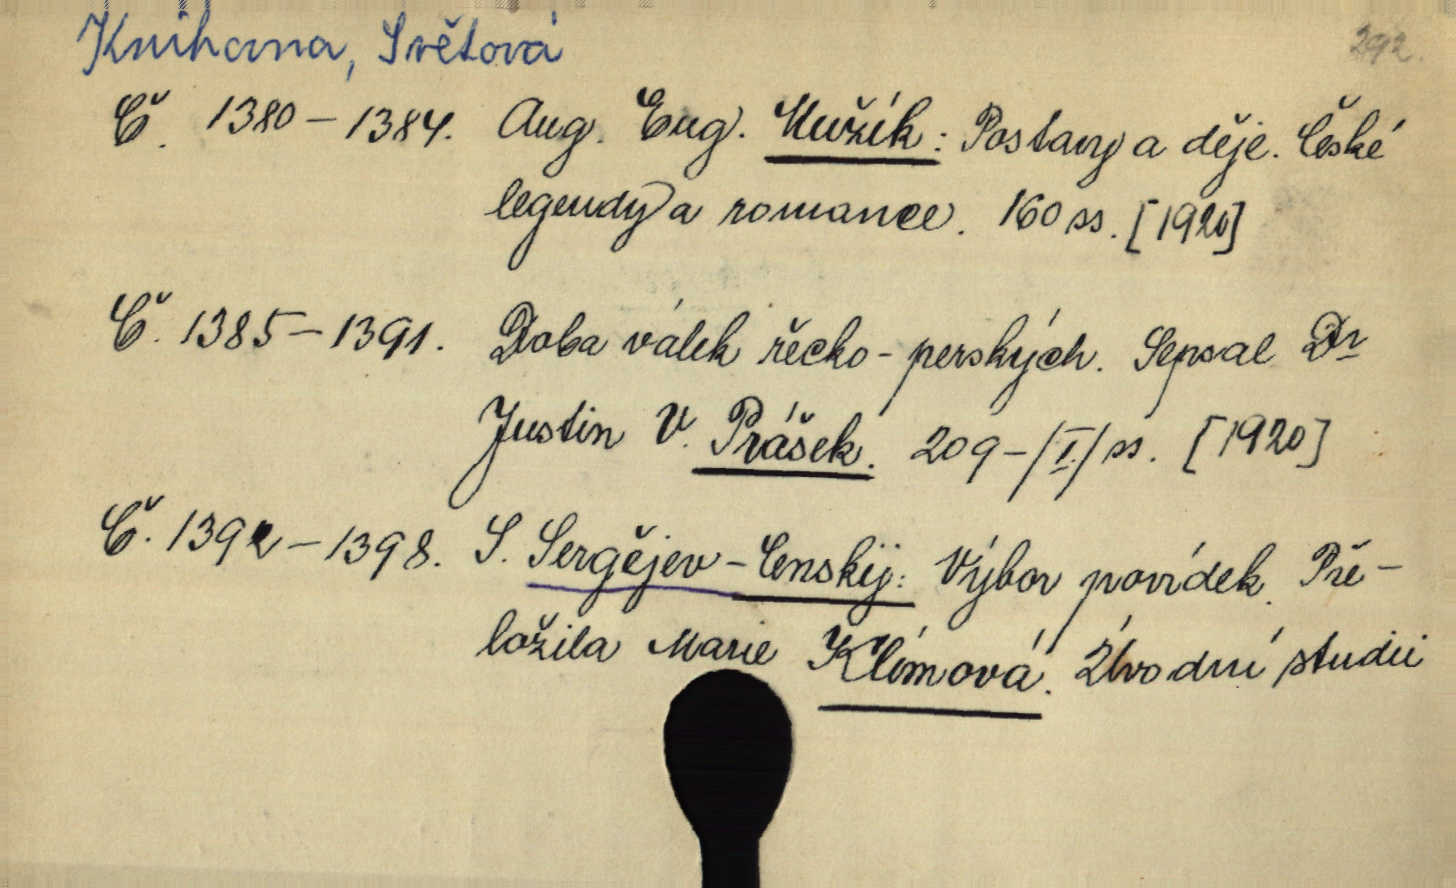 Knihovna, Světová
292.
Č. 1380-1384. Aug. Eug. Mužík: Postavy a děje. České
legendy a romance. 160 ss. [1920]
Č. 1385-1391. Doba válek řecko-perských. Sepsal Dr
Justin V. Prášek. 209-/I./ ss. [1920]
Č. 1392-1398. S. Sergějev-Censkij: Výbor povídek. Pře-
ložila Marie Klímová. Úvodní studii